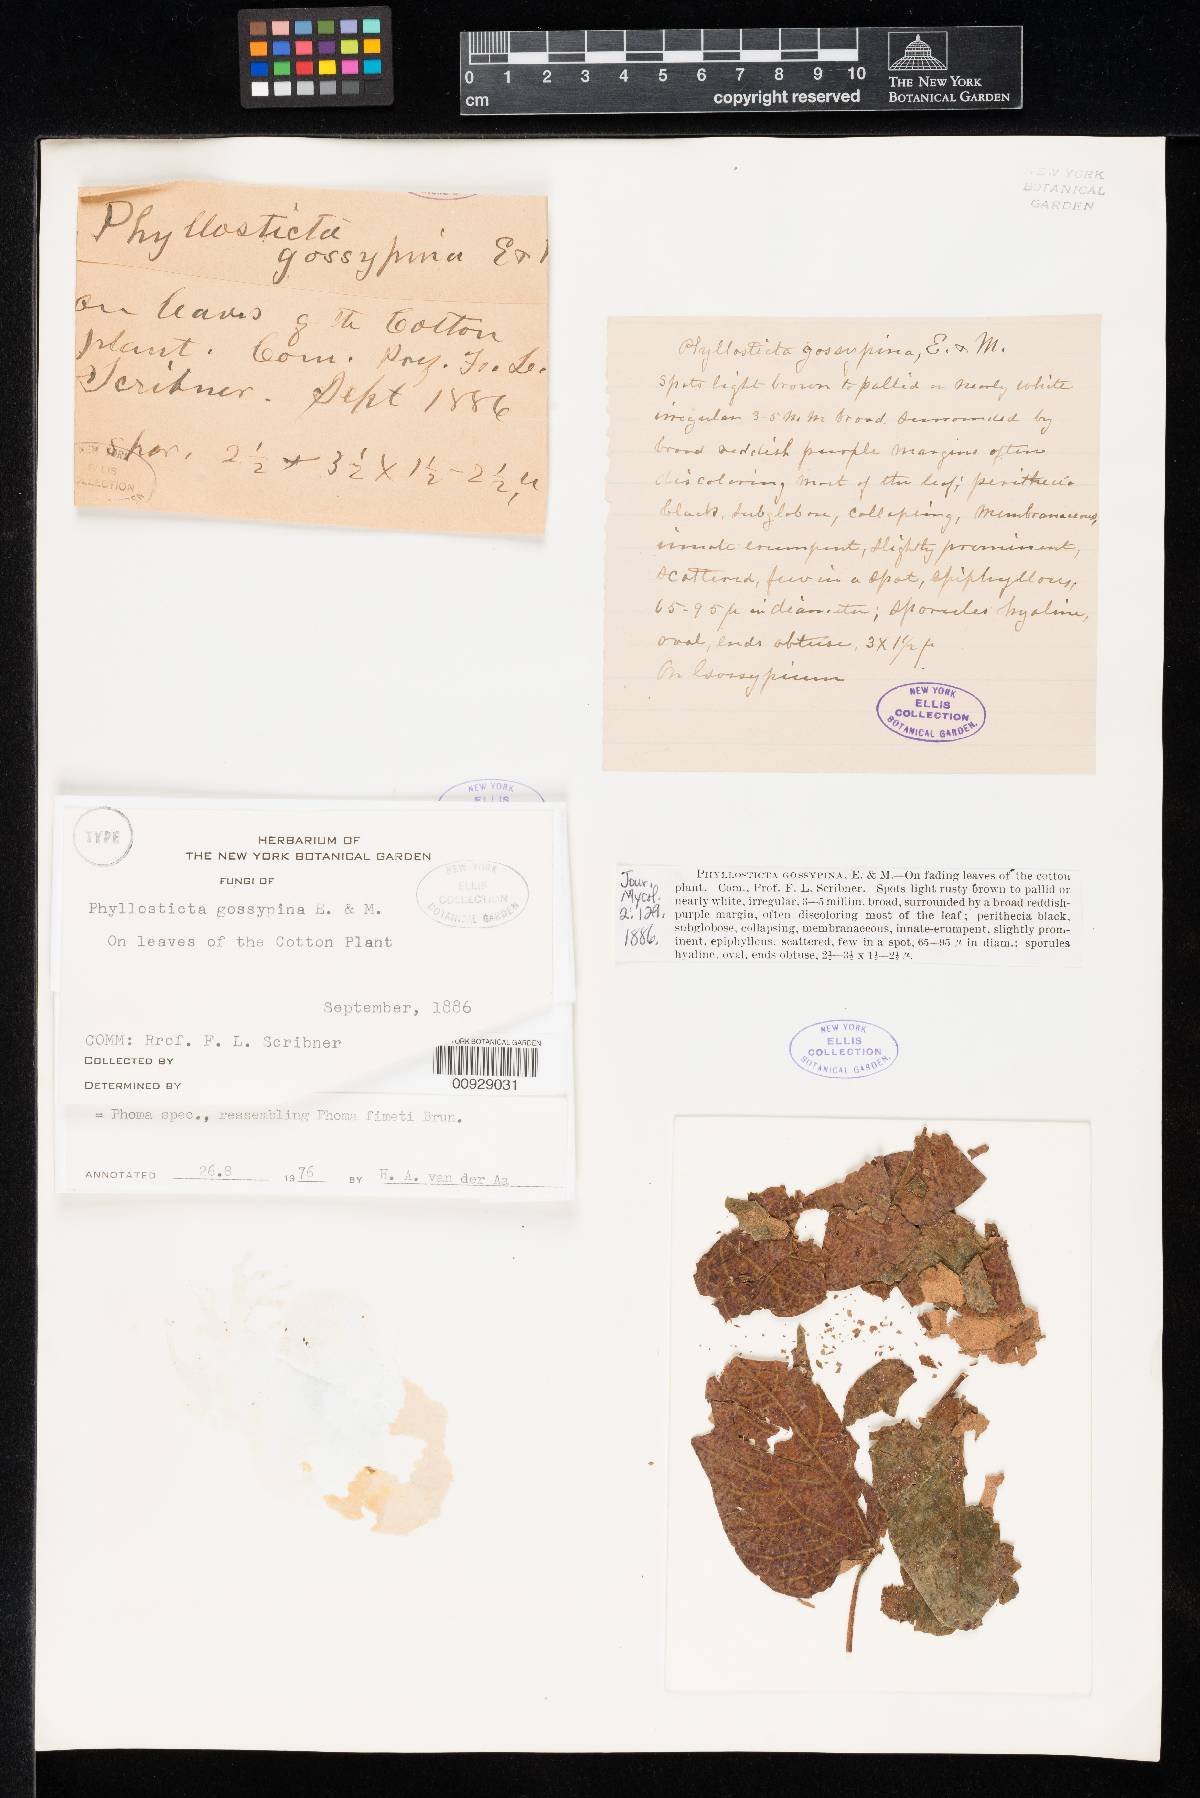 0 1 2 3 4 5 6 7 8 9 10
cm
copyright reserved
THE NEW YORK
BOTANICAL GARDEN
NEW YORK
BOTANICAL
GARDEN
Phyllosticta
gossypina E &
on leaves of the Cotton
plant. Com. Prof. F. L.
Scribner. Sept 1886
spor. 2 1/2 - 3 1/2 X 1 1/2 - 2 1/2 µ
NEW YORK
ELLIS
COLLECTION
Phyllosticta gossypina, E. & M.
Spots light brown to pallid or nearly white
irregular 3-5 m m broad surrounded by
broad reddish purple margins often
discoloring most of the leaf; perithecia
black, subglobose, collapsing, membranaceous,
innate erumpent, slightly prominent,
scattered, few in a spot, epiphyllous,
65-95 µ in diameter; sporules hyaline,
oval, ends obtuse, 3 X 1 1/2 µ
On Gossypium
NEW YORK
ELLIS
COLLECTION
BOTANICAL GARDEN.
NEW YORK
ELLIS
TYPE
HERBARIUM OF
THE NEW YORK BOTANICAL GARDEN
FUNGI OF
NEW YORK
ELLIS
COLLECTION
BOTANICAL GARDEN
Phyllosticta gossypina E. & M.
On leaves of the Cotton Plant
September, 1886
COMM: Rrof. F. L. Scribner
COLLECTED BY
DETERMINED BY
YORK BOTANICAL GARDEN
00929031
= Phoma spec., ressembling Phoma fimeti Brun.
ANNOTATED 26.8 1976 BY H. A. van der Aa
Jour.
Mycol.
2: 129.
1886.
PHYLLOSTICTA GOSSYPINA, E. & M.—On fading leaves of the cotton
plant. Com., Prof. F. L. Scribner. Spots light rusty brown to pallid or
nearly white, irregular, 3—5 millim. broad, surrounded by a broad reddish-
purple margin, often discoloring most of the leaf; perithecia black,
subglobose, collapsing, membranaceous, innate-erumpent, slightly prom-
inent, epiphyllous, scattered, few in a spot, 65—95 µ in diam.; sporules
hyaline, oval, ends obtuse, 2½—3½ x 1½—2½ µ.
NEW YORK
ELLIS
COLLECTION
BOTANICAL GARDEN.